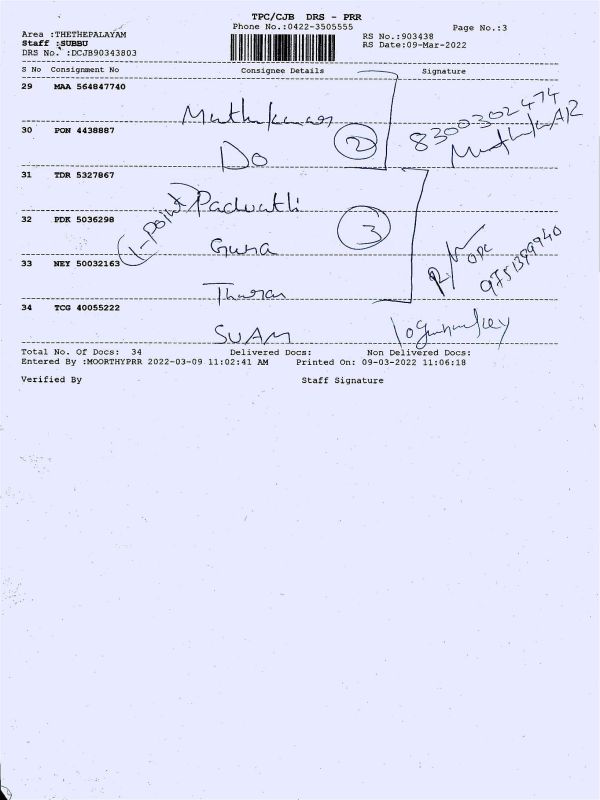 TPC/CJB DRS - PRR
Phone No.:0422-3505555 Page No.:3
Area :THETHEPALAYAM RS No.:903438
Staff :SUBBU RS Date:09-Mar-2022
DRS No. :DCJB90343803
S No Consignment No Consignee Details Signature
29 MAA 564847740
Muthukumar 8300302474
30 PON 4438887
Do 2
31 TDR 5327867
1-Point
32 PDK 5036298 3
Guna 9751399940
33 NEY 50032163
34 TCG 40055222
Total No. Of Docs: 34 Delivered Docs: Non Delivered Docs:
Entered By :MOORTHYPRR 2022-03-09 11:02:41 AM Printed On: 09-03-2022 11:06:18
Verified By Staff Signature